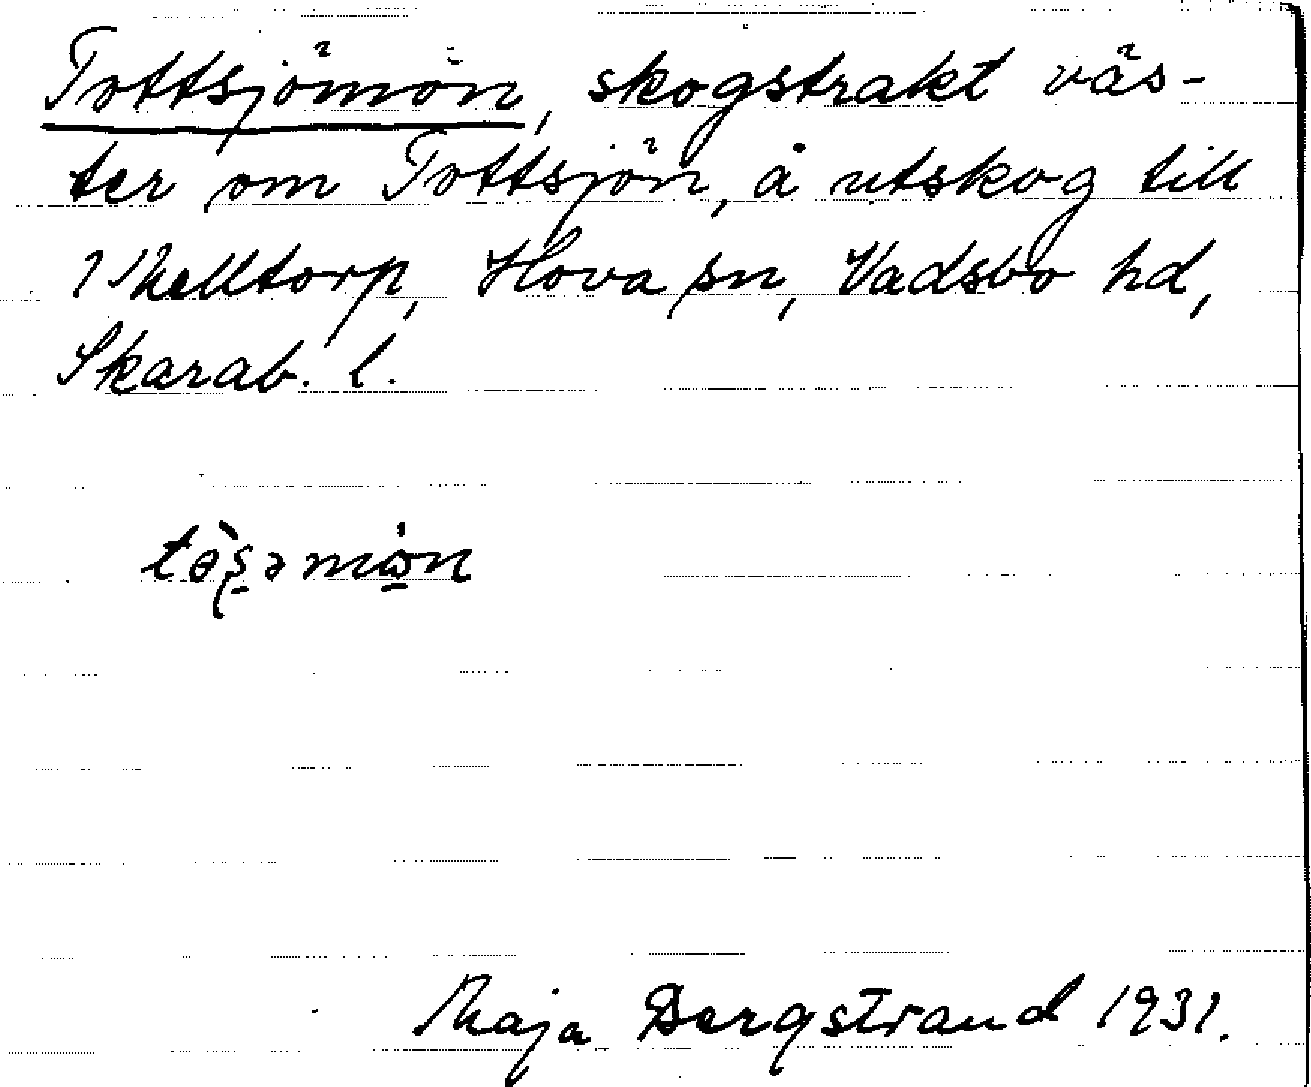 Tottsjömon, skogstrakt väs-
ter om Tottsjön, å utskog till
Melltorp, Hova sn, Vadsbo hd,
Skarab. l.
Maja Bergstrand 1931.